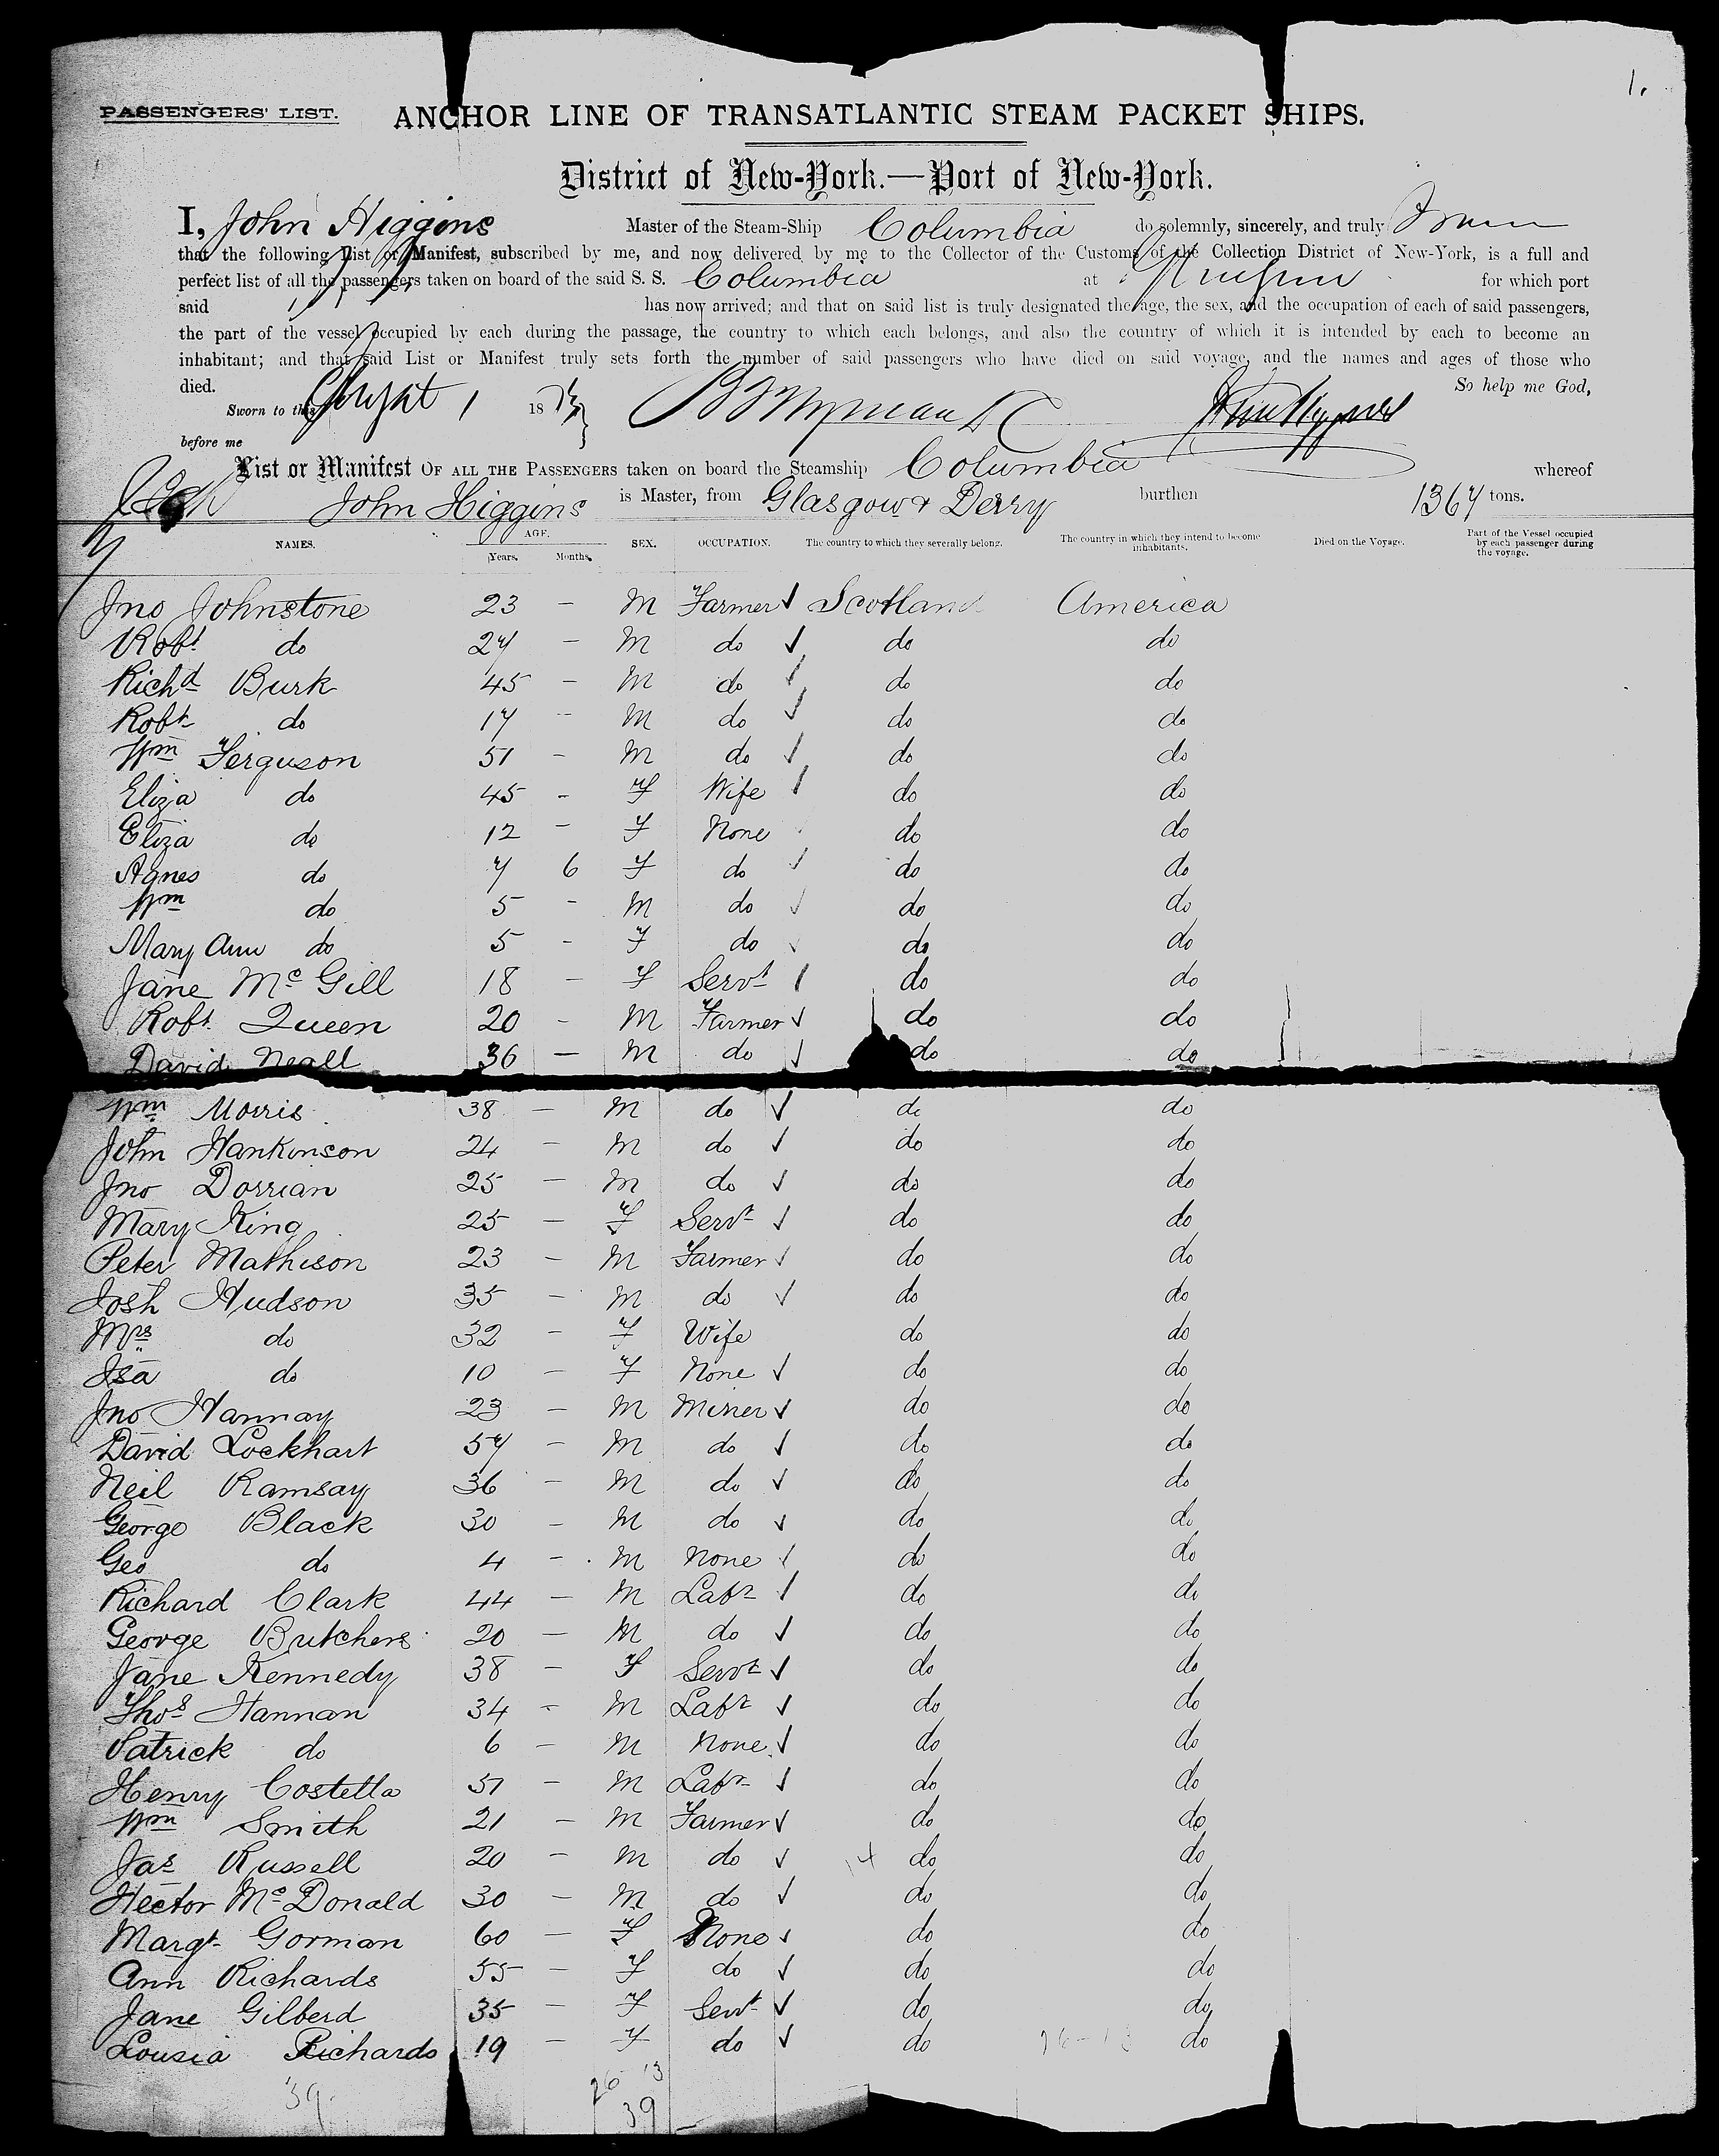 1.
PASSENGERS' LIST. ANCHOR LINE OF TRANSATLANTIC STEAM PACKET SHIPS.
District of New-York.—Port of New-York.
I, John Higgins Master of the Steam-Ship Columbia do solemnly, sincerely, and truly
that the following List or Manifest, subscribed by me, and now delivered by me to the Collector of the Customs of the Collection District of New-York, is a full and
perfect list of all the passengers taken on board of the said S. S. Columbia at for which port
said has now arrived; and that on said list is truly designated the age, the sex, and the occupation of each of said passengers,
the part of the vessel occupied by each during the passage, the country to which each belongs, and also the country of which it is intended by each to become an
inhabitant; and that said List or Manifest truly sets forth the number of said passengers who have died on said voyage, and the names and ages of those who
died. So help me God,
Sworn to this 1 1873
before me
List or Manifest OF ALL THE PASSENGERS taken on board the Steamship Columbia whereof
John Higgins is Master, from Glasgow & Derry burthen 1367 tons.
NAMES. AGE. Years. Months. SEX. OCCUPATION. The country to which they severally belong. The country in which they intend to become inhabitants. Died on the Voyage. Part of the Vessel occupied by each passenger during the voyage.
Jno Johnstone 23 – M Farmer ✓ Scotland America
Robt do 27 – M do ✓ do do
Richd Burk 45 – M do ✓ do do
Robt do 17 – M do ✓ do do
Wm Ferguson 51 – M do ✓ do do
Eliza do 45 – F Wife ✓ do do
Eliza do 12 – F None do do
Agnes do 7 6 F do ✓ do do
Wm do 5 – M do ✓ do do
Mary Ann do 5 – F do ✓ do do
Jane McGill 18 – F Servt ✓ do do
Robt Queen 20 – M Farmer ✓ do do
David Neall 36 – M do ✓ do do
Wm Morris 38 – M do ✓ do do
John Hankinson 24 – M do ✓ do do
Jno Dorrian 25 – M do ✓ do do
Mary King 25 – F Servt ✓ do do
Peter Mathison 23 – M Farmer ✓ do do
Josh Hudson 35 – M do ✓ do do
Mrs do 32 – F Wife do do
Isa do 10 – F None ✓ do do
Jno Hannay 23 – M Miner ✓ do do
David Lockhart 57 – M do ✓ do do
Neil Ramsay 36 – M do ✓ do do
George Black 30 – M do ✓ do do
Geo do 4 – M None ✓ do do
Richard Clark 44 – M Labr ✓ do do
George Butchers 20 – M do ✓ do do
Jane Kennedy 38 – F Servt ✓ do do
Thos Hannan 34 – M Labr ✓ do do
Patrick do 6 – M None ✓ do do
Henry Costella 51 – M Labr ✓ do do
Wm Smith 21 – M Farmer ✓ do do
Jas Russell 20 – M do ✓ 14 do do
Hector McDonald 30 – M do ✓ do do
Margt Gorman 60 – F None ✓ do do
Ann Richards 55 – F do ✓ do do
Jane Gilberd 35 – F Servt ✓ do do
Lousia Richards 19 – F do ✓ do 26–13 do
39 26 13
39